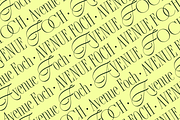 AVENUE
FOCH. Avenue
Avenue Foch. AVENUE FOCH.
AVENUE FOCH. Avenue Foch.
Avenue Foch. AVENUE FOCH.
AVENUE FOCH. Avenue Foch.
Avenue Foch. AVENUE
FOCH.